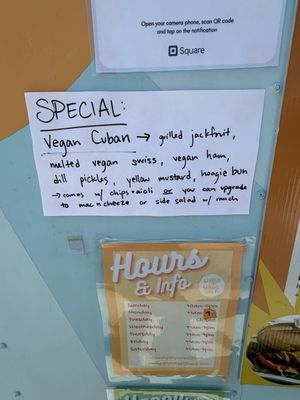 Open your camera phone, scan QR code
and tap on the notification
Square
SPECIAL:
Vegan Cuban → grilled jackfruit,
melted vegan swiss, vegan ham,
dill pickles, yellow mustard, hoagie bun
→ comes w/ chips + aioli or you can upgrade
to mac n cheeze or side salad w/ ranch
Hours
& Info
Sunday
Monday
Tuesday
Wednesday
Thursday
Friday
Saturday